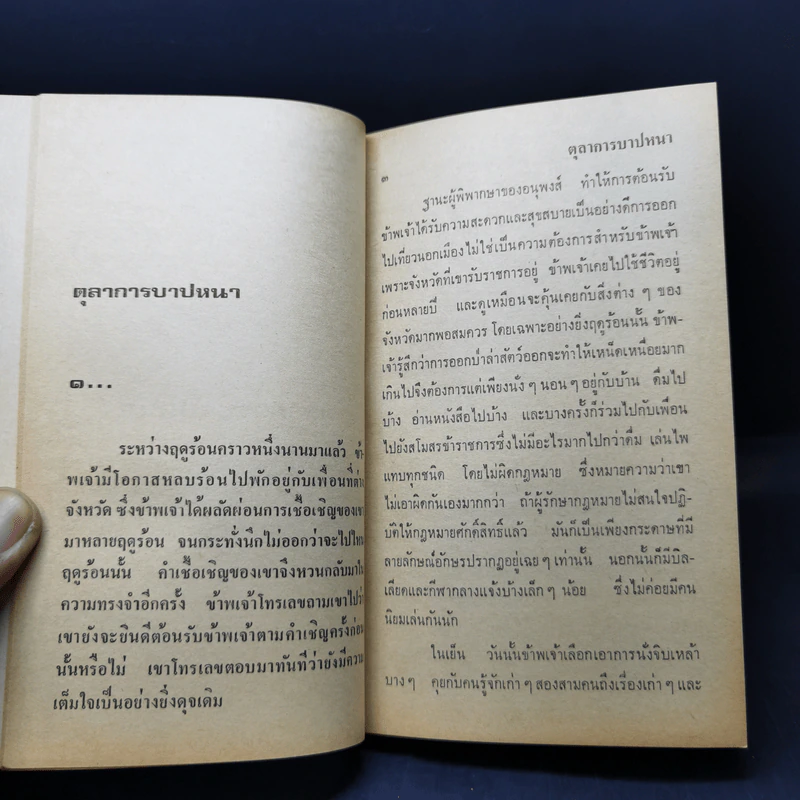 ตุลาการบาปหนา
๑...
ระหว่างฤดูร้อนคราวหนึ่งนานมาแล้ว ข้า-
พเจ้ามีโอกาสหลบร้อนไปพักอยู่กับเพื่อนที่ต่าง
จังหวัด ซึ่งข้าพเจ้าได้ผลัดผ่อนการเชื้อเชิญของเขา
มาหลายฤดูร้อน จนกระทั่งนึกไม่ออกว่าจะไปไหน
ฤดูร้อนนั้น คำเชื้อเชิญของเขาจึงหวนกลับมาใน
ความทรงจำอีกครั้ง ข้าพเจ้าโทรเลขถามเขาไปว่า
เขายังจะยินดีต้อนรับข้าพเจ้าตามคำเชิญครั้งก่อน
นั้นหรือไม่ เขาโทรเลขตอบมาทันทีว่ายังมีความ
เต็มใจเป็นอย่างยิ่งดุจเดิม
ตุลาการบาปหนา
๓
ฐานะผู้พิพากษาของอนุพงส์ ทำให้การต้อนรับ
ข้าพเจ้าได้รับความสะดวกและสุขสบายเป็นอย่างดีการออก
ไปเที่ยวนอกเมืองไม่ใช่เป็นความต้องการสำหรับข้าพเจ้า
เพราะจังหวัดที่เขารับราชการอยู่ ข้าพเจ้าเคยไปใช้ชีวิตอยู่
ก่อนหลายปี และดูเหมือนจะคุ้นเคยกับสิ่งต่าง ๆ ของ
จังหวัดมากพอสมควร โดยเฉพาะอย่างยิ่งฤดูร้อนนั้น ข้าพ-
เจ้ารู้สึกว่าการออกป่าล่าสัตว์ออกจะทำให้เหน็ดเหนื่อยมาก
เกินไปจึงต้องการแต่เพียงนั่ง ๆ นอน ๆ อยู่กับบ้าน ดื่มไป
บ้าง อ่านหนังสือไปบ้าง และบางครั้งก็ร่วมไปกับเพื่อน
ไปยังสโมสรข้าราชการซึ่งไม่มีอะไรมากไปกว่าดื่ม เล่นไพ่
แทบทุกชนิด โดยไม่ผิดกฎหมาย ซึ่งหมายความว่าเขา
ไม่เอาผิดกันเองมากกว่า ถ้าผู้รักษากฎหมายไม่สนใจปฏิ-
บัติให้กฎหมายศักดิ์สิทธิ์แล้ว มันก็เป็นเพียงกระดาษที่มี
ลายลักษณ์อักษรปรากฏอยู่เฉย ๆ เท่านั้น นอกนั้นก็มีบิล-
เลียดและกีฬากลางแจ้งบ้างเล็ก ๆ น้อย ซึ่งไม่ค่อยมีคน
นิยมเล่นกันนัก
ในเย็น วันนั้นข้าพเจ้าเลือกเอาการนั่งจิบเหล้า
บาง ๆ คุยกับคนรู้จักเก่า ๆ สองสามคนถึงเรื่องเก่า ๆ และ